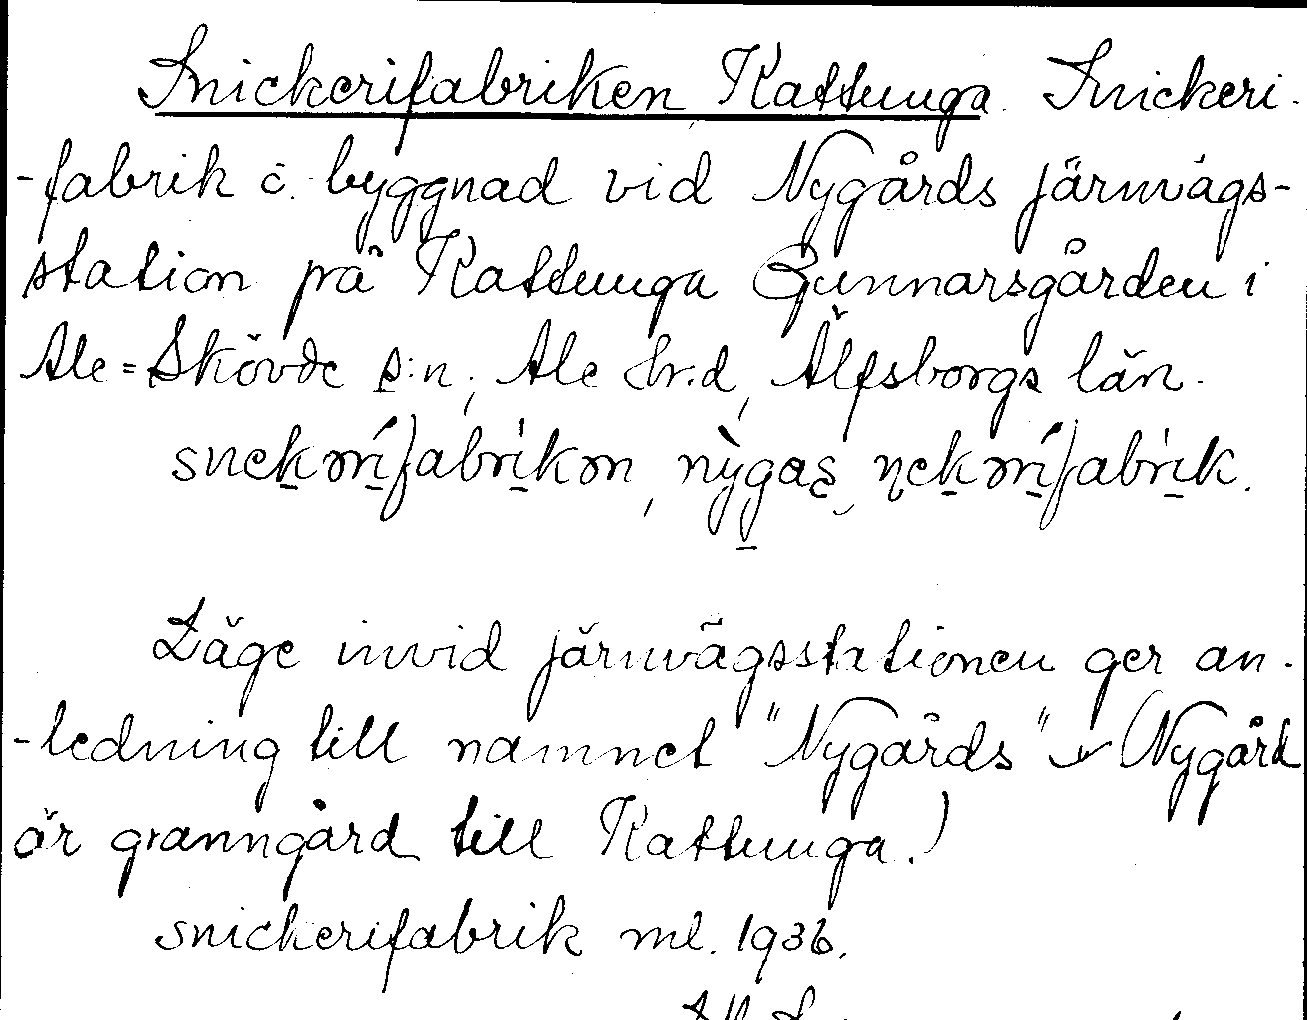 Snickerifabriken Kattunga. Snickeri-
-fabrik o. byggnad vid Nygårds järnvägs-
station på Kattunga Gunnarsgården i
Ale=Skövde s:n, Ale hr.d, Älfsborgs län.
snekərifabrikən, nygaş ņekərifabrik.
Läge invid järnvägsstationen ger an-
-ledning till namnet "Nygårds" (Nygård
är granngård till Kattunga.)
snickerifabrik ml. 1936.